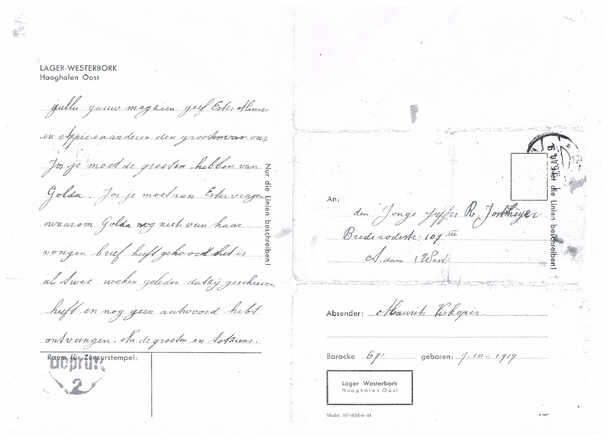 LAGER-WESTERBORK
Haaghalen Oost
jullie gauw mogzien geef Ester Mimi
en Appie en anderen den groeten van ons
Jos je moet de groeten hebben van
Golda. Jos je moet van Ester vragen
waarom Golda nog niet van haar
vorigen brief heeft gehoord het is
al twee weken geleden dat zij geschreven
heeft en nog geen antwoord hebt
ontvangen. Nu de groeten en totziens.
Nur die Linien beschreiben!
Raum für Zensurstempel:
Geprüft
2
Nur die Linien beschreiben!
An:
den Jonge Juffer R.
Brederodestr 109 III
A.dam (West)
Absender: Maurits Verhoper
Baracke 69 geboren: 7-10-1919
Lager Westerbork
Haaghalen Oost